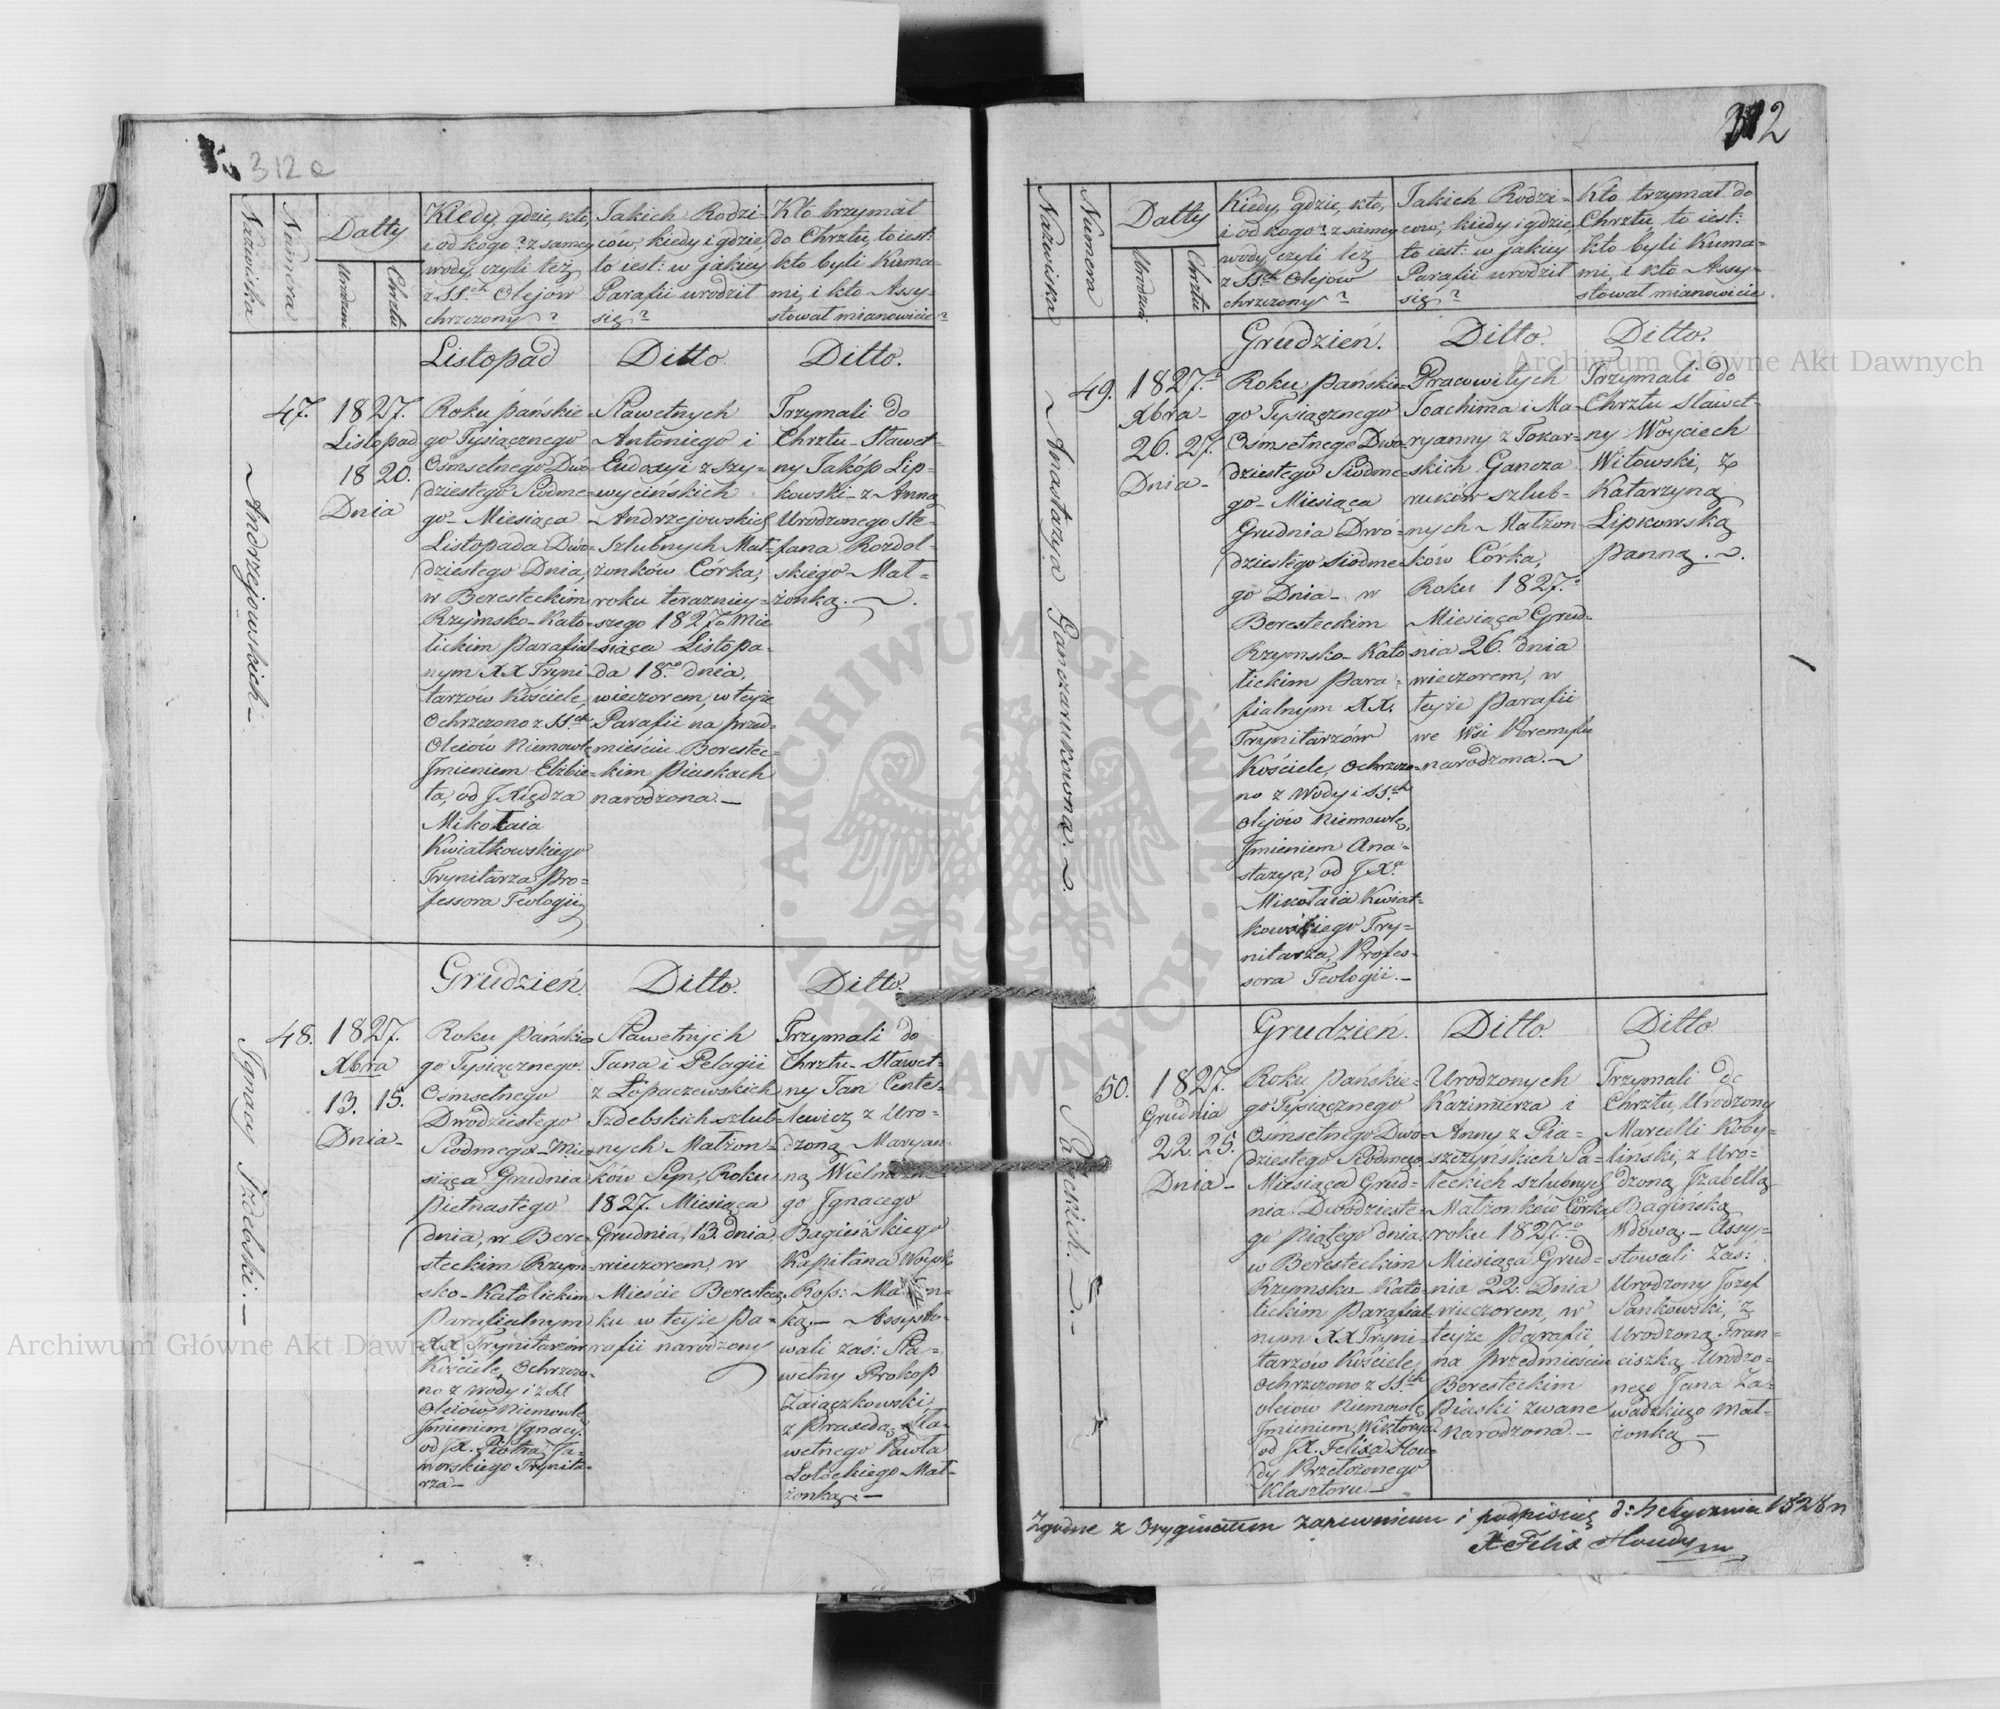 312a
Nazwiska
Numera
Datty
Urodzeni
Chrztu
Kiedy, gdzie, kto,
i od kogo? z samey
wody, czyli też
z SS.ch Olejow
chrzczony?
Jakich Rodzi-
ców, kiedy i gdzie,
to iest: w jakiey
Parafii urodził
się?
Kto trzymał
do Chrztu, to iest:
kto byli Kuma-
mi, i kto Assy-
stował mianowicie?
Listopad
Ditto.
Ditto.
Andrzejowskich
47.
1827.
Listopad
18 20.
Dnia
Roku Pańskie-
go Tysiącznego
Ośmsetnego Dwó-
dziestego Siódme-
go Miesiąca
Listopada Dwó-
dziestego Dnia,
w Beresteckim
Rzymsko-Kato-
lickim Parafial-
nym XX Tryni-
tarzów Kościele,
Ochrzczono z SS.ch
Oleiów Niemowlę
Jmieniem Elżbie-
ta, od J Xiędza
Mikołaia
Kwiatkowskiego
Trynitarza Pro-
fessora Teologii
Sławetnych
Antoniego i
Eudoxyi z Szy-
wycińskich
Andrzejowskich
Szlubnych Mał-
żonków Córka,
roku terazniey-
szego 1827o Mie-
siąca Listopa-
da 18.go dnia,
wieczorem, w teyże
Parafii na przed-
mieściu Berestec-
kim Piaskach
narodzona.—
Trzymali do
Chrztu Sławet-
ny Jakób Lip-
kowski z Anną
Urodzonego Ste-
fana Rozdol-
skiego Mał-
żonką.
Grudzień.
Ditto.
Ditto.
Jgnacy Jzdebski.—
48.
1827.
Xbra
13. 15.
Dnia-
Roku Pańskie-
go Tysiącznego
Ośmsetnego
Dwódziestego
Siódmego Mie-
siąca Grudnia
Piętnastego
dnia, w Bere-
steckim Rzym-
sko-Katolickim
Parafialnym
XX Trynitarzów
Kościele, Ochrzczo-
no z Wody i z SS.
Oleiów Niemowlę
Jmieniem Jgnacy.
od JX. Piotra Ja-
worskiego Trynita-
rza—
Sławetnych
Jana i Pelagii
z Łopaczewskich
Jzdebskich szlub-
nych Małżon-
ków Syn, Roku
1827. Miesiąca
Grudnia, 13. dnia
wieczorem, w
Mieście Berestecz-
ku w teyże Pa-
rafii narodzony
Trzymali do
Chrztu Sławet-
ny Jan Cente-
lewicz z Uro-
dzoną Maryan-
ną Wielmożne-
go Jgnacego
Bagieńskiego
Kapitana Woysk
Ross: Małżon-
ką.— Assysto-
wali zaś: Sła-
wetny Prokop
Zaiączkowski
z Praxedą, Sła-
wetnego Pawła
Łotockiego Mał-
żonką.—
312
Nazwiska
Numera
Datty
Urodzeni
Chrztu
Kiedy, gdzie, kto,
i od kogo? z samey
wody, czyli też
z SS.ch Olejow
chrzczony?
Jakich Rodzi-
ców, kiedy i gdzie,
to iest: w jakiey
Parafii urodził
się?
Kto trzymał do
Chrztu, to iest:
kto byli Kuma-
mi, i kto Assy-
stował mianowicie.
Grudzień.
Ditto.
Ditto.
Anastazyja Ganczarukowna.
49.
1827.
Xbra-
26. 27.
Dnia-
Roku Pańskie-
go Tysiącznego
Ośmsetnego Dwo-
dziestego Siódme-
go Miesiąca
Grudnia Dwó-
dziestego Siódme-
go Dnia w
Beresteckim
Rzymsko-Kato-
lickim Para-
fialnym XX.
Trynitarzów
Kościele, Ochrzczo-
no z Wody i SS.ch
Olejów Niemowlę,
Jmieniem Ana-
stazya, od JX.
Mikołaia Kwiat-
kowskiego Try-
nitarza, Profes-
sora Teologii.—
Pracowitych
Joachima i Ma-
ryanny z Tokar-
skich Gancza
ruków szlub-
nych Małżon-
ków Córka,
Roku 1827.o
Miesiąca Grud-
nia 26. dnia
wieczorem, w
teyże Parafii
we Wsi Peremylu
narodzona.
Trzymali do
Chrztu Sławet-
ny Woyciech
Witowski, z
Katarzyną
Lipkowską
Panną.
Grudzień.
Ditto.
Ditto
50.
1827.
Grudnia
22. 25.
Dnia-
Roku Pańskie-
go Tysiącznego
Ośmsetnego Dwo-
dziestego Siódmego
Miesiąca Grud-
nia Dwodzieste-
go piątego dnia
w Beresteckim
Rzymsko Kato-
lickim Parafial-
nym XX Tryni-
tarzów Kościele,
Ochrzczono z SS.ch
oleiów Niemowlę
Jmieniem Wiktorya
od JX. Felixa Hou-
dy Przełożonego
Klasztoru—
Urodzonych
Kazimierza i
Anny z Pia-
szczyńskich Sa-
leckich szlubnych
Małżonków Córka
roku 1827.o
Miesiąca Grud-
nia 22. Dnia
wieczorem, w
teyże Parafii
na Przedmieściu
Beresteckim
Piaski zwane
Narodzona.—
Trzymali do
Chrztu, Urodzony
Marcelli Koby-
linski, z Uro-
dzoną Jzabellą
Bagińską
Wdową.— Assy-
stowali zaś:
Urodzony Jozef
Pankowski, z
Urodzoną Fran-
ciszką Urodzo-
nego Jana Za-
wadzkiego Mał-
żonką—
Zgodne z Oryginałem zapewniam i podpisuię d: 4 Stycznia 1828 r
X Felix Houdy
Archiwum Główne Akt Dawnych
Archiwum Główne Akt Dawnych
ARCHIWUM GŁÓWNE AKT DAWNYCH